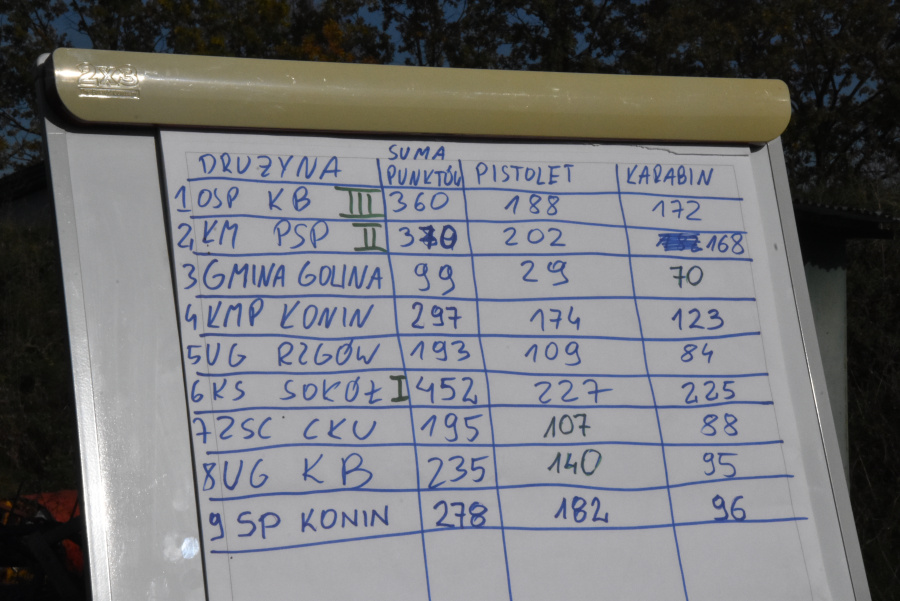 2x3
DRUŻYNA SUMA PUNKTÓW PISTOLET KARABIN
1 OSP KB III 360 188 172
2 KM PSP II 370 202 168
3 GMINA GOLINA 99 29 70
4 KMP KONIN 297 174 123
5 UG RZGÓW 193 109 84
6 KS SOKÓŁ I 452 227 225
7 ZSC CKU 195 107 88
8 UG KB 235 140 95
9 SP KONIN 278 182 96